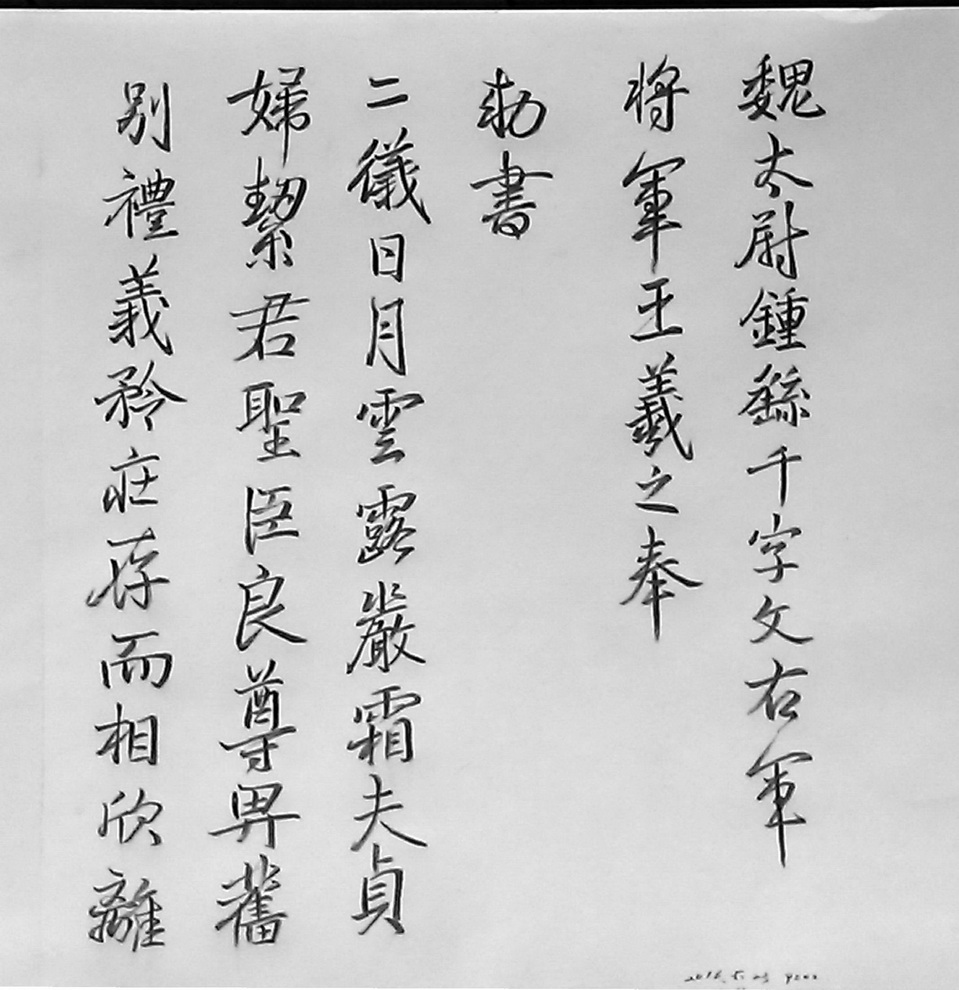 魏太尉鍾繇千字文右軍
将軍王羲之奉
勑書
二儀日月雲露嚴霜夫貞
婦絜君聖臣良尊卑舊
别禮義矜庄存而相欣離